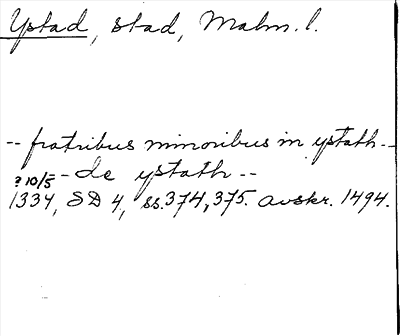 Ystad, stad, Malm. l.
-- fratribus minoribus in ystath --
-- de ystath --
? 10/5
1334, SD 4, ss. 374, 375. avskr. 1494.